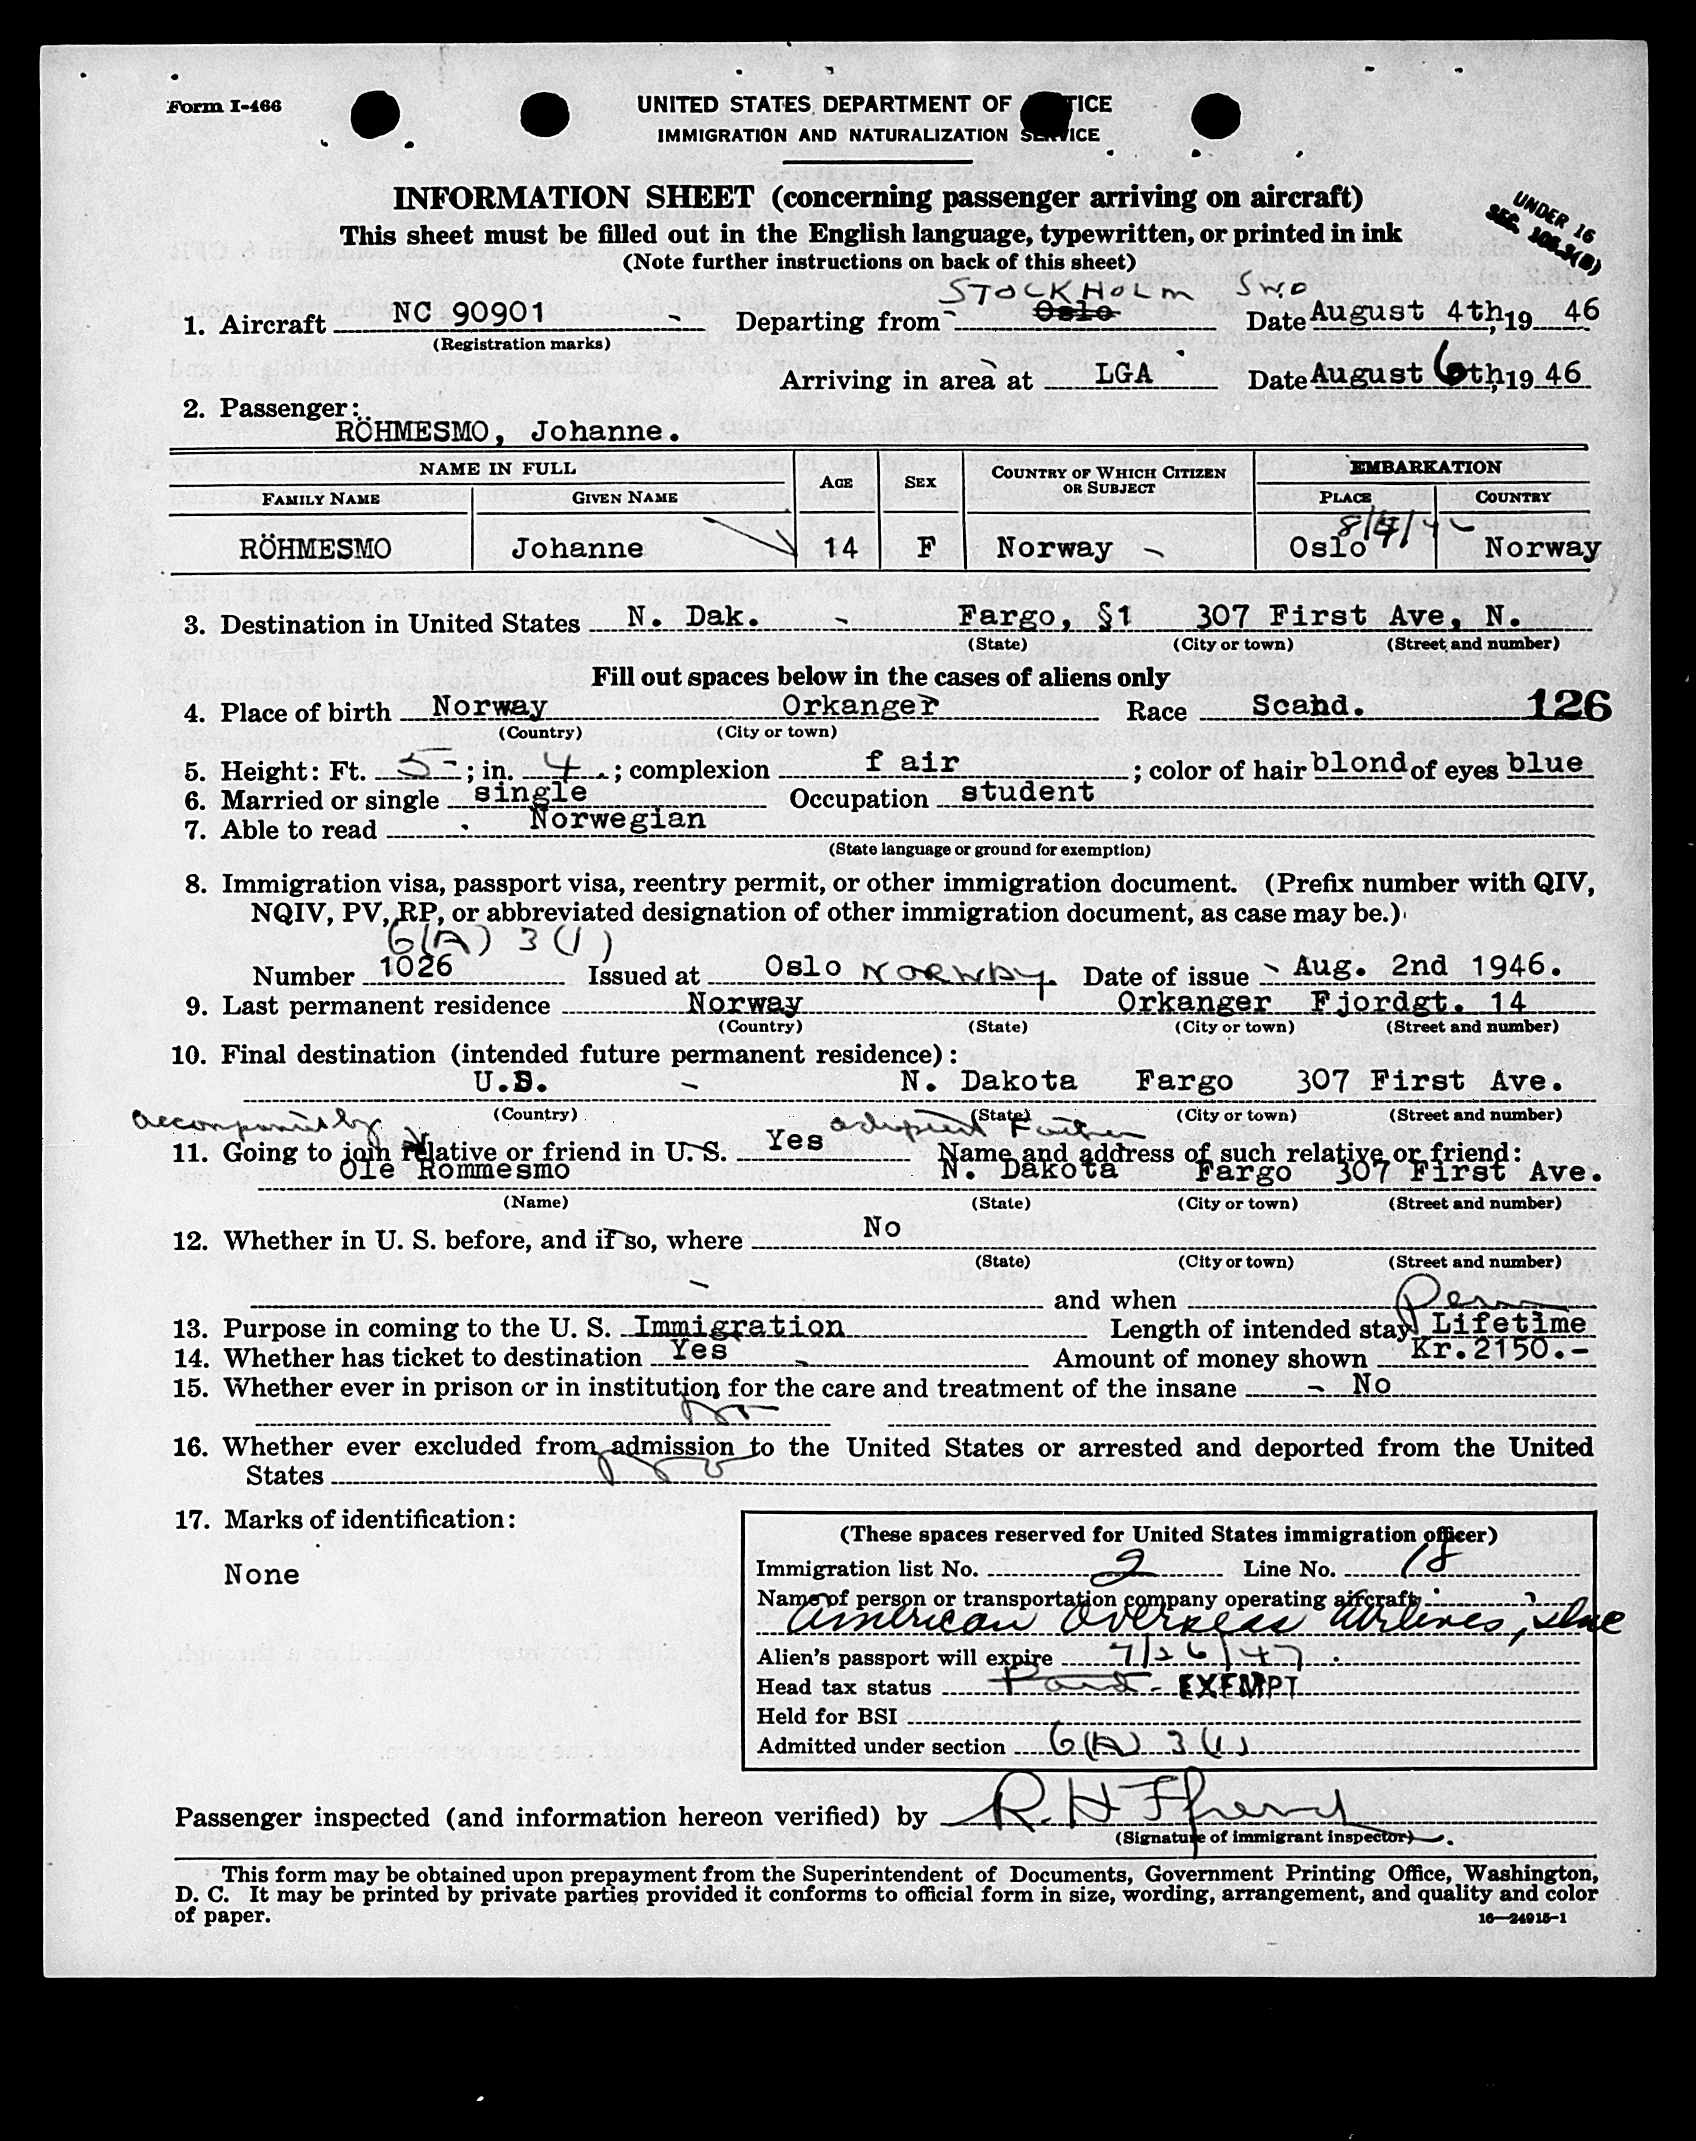 Form I-466
UNITED STATES DEPARTMENT OF TICE
IMMIGRATION AND NATURALIZATION SERVICE
INFORMATION SHEET (concerning passenger arriving on aircraft)
This sheet must be filled out in the English language, typewritten, or printed in ink
(Note further instructions on back of this sheet)
UNDER 16
SEC.
STOCKHOLM SWD
1. Aircraft NC 90901 - Departing from Oslo Date August 4th, 19 46
(Registration marks)
Arriving in area at LGA Date August 6th, 19 46
2. Passenger:
RÖHMESMO, Johanne.
NAME IN FULL AGE SEX COUNTRY OF WHICH CITIZEN OR SUBJECT EMBARKATION
FAMILY NAME GIVEN NAME PLACE COUNTRY
RÖHMESMO Johanne 14 F Norway Oslo Norway
3. Destination in United States N. Dak. - Fargo, §1 307 First Ave, N.
(State) (City or town) (Street and number)
Fill out spaces below in the cases of aliens only
4. Place of birth Norway Orkanger Race Scand. 126
(Country) (City or town)
5. Height: Ft. 5 ; in. 4 ; complexion f air ; color of hair blond of eyes blue
6. Married or single single Occupation student
7. Able to read Norwegian
(State language or ground for exemption)
8. Immigration visa, passport visa, reentry permit, or other immigration document. (Prefix number with QIV,
NQIV, PV, RP, or abbreviated designation of other immigration document, as case may be.)
6(A) 3(1)
Number 1026 Issued at Oslo NORWAY Date of issue Aug. 2nd 1946.
9. Last permanent residence Norway Orkanger Fjordgt. 14
(Country) (State) (City or town) (Street and number)
10. Final destination (intended future permanent residence):
U.S. - N. Dakota Fargo 307 First Ave.
(Country) (State) (City or town) (Street and number)
accompanied by adoptive Father
11. Going to join relative or friend in U. S. Yes Name and address of such relative or friend:
Ole Rommesmo N. Dakota Fargo 307 First Ave.
(Name) (State) (City or town) (Street and number)
12. Whether in U. S. before, and if so, where No
(State) (City or town) (Street and number)
and when
Perm
13. Purpose in coming to the U. S. Immigration Length of intended stay Lifetime
14. Whether has ticket to destination Yes Amount of money shown Kr.2150.-
15. Whether ever in prison or in institution for the care and treatment of the insane - No
No
16. Whether ever excluded from admission to the United States or arrested and deported from the United
States No
17. Marks of identification:
None
(These spaces reserved for United States immigration officer)
Immigration list No. 2 Line No. 18
Name of person or transportation company operating aircraft
American Overseas Airlines, Inc
Alien's passport will expire 7/26/47
Head tax status Paid EXEMPT
Held for BSI
Admitted under section 6(A) 3(1)
Passenger inspected (and information hereon verified) by R. H.
(Signature of immigrant inspector)
This form may be obtained upon prepayment from the Superintendent of Documents, Government Printing Office, Washington,
D. C. It may be printed by private parties provided it conforms to official form in size, wording, arrangement, and quality and color
of paper.
16—24915-1